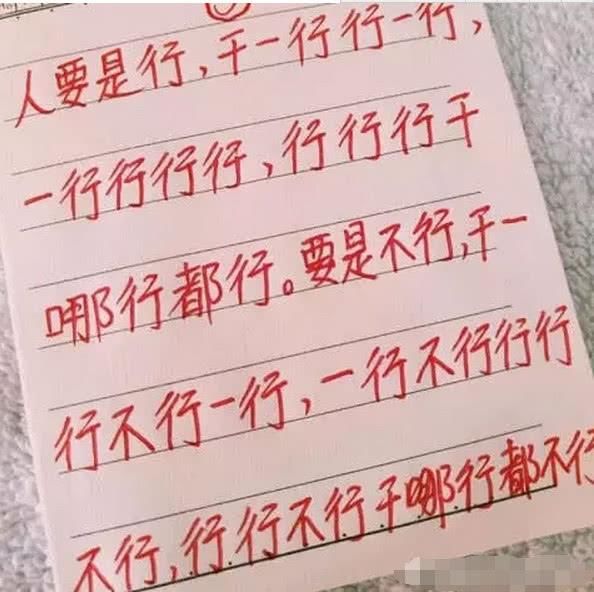 人要是行,干一行行一行,
一行行行行,行行行干
哪行都行。要是不行,干一
行不行一行,一行不行行行
不行,行行不行干哪行都不行